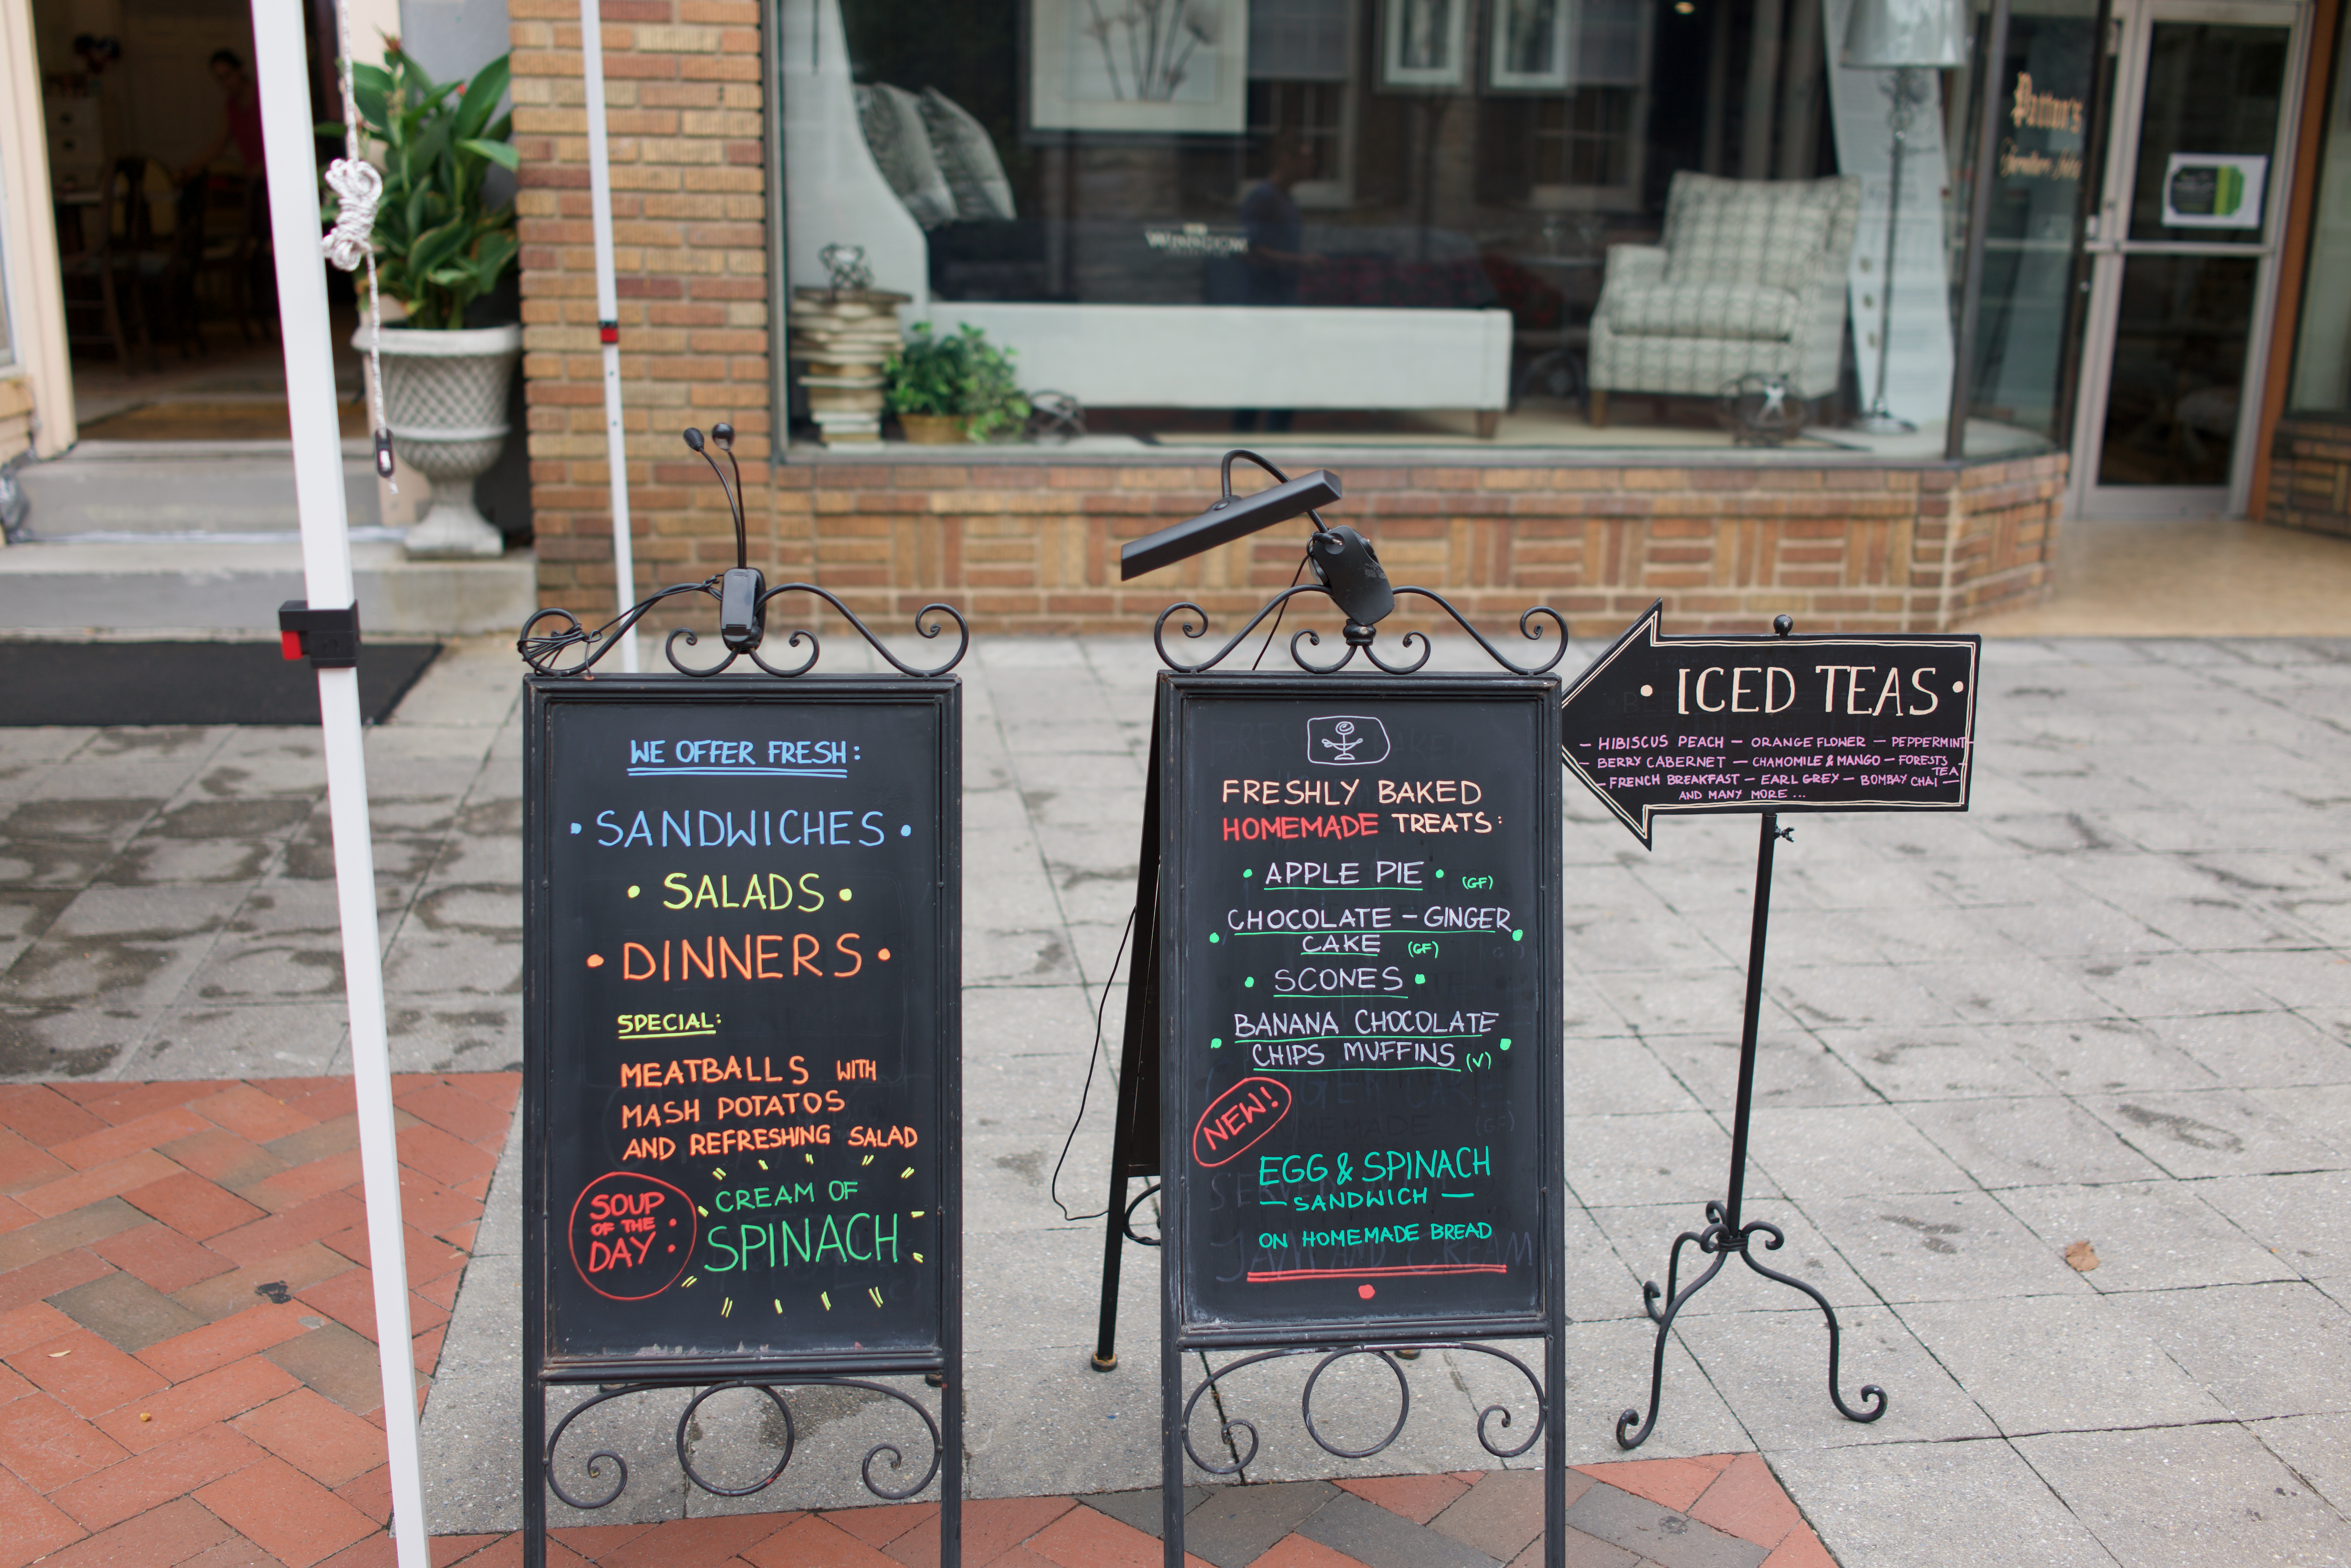 WE OFFER FRESH:
• SANDWICHES •
• SALADS •
• DINNERS •
SPECIAL:
MEATBALLS WITH
MASH POTATOS
AND REFRESHING SALAD
SOUP
OF THE
DAY:
CREAM OF
SPINACH
FRESHLY BAKED
HOMEMADE TREATS:
• APPLE PIE • (GF)
• CHOCOLATE - GINGER •
CAKE (GF)
• SCONES •
• BANANA CHOCOLATE •
CHIPS MUFFINS (V)
NEW!
EGG & SPINACH
— SANDWICH —
ON HOMEMADE BREAD
• ICED TEAS •
— HIBISCUS PEACH — ORANGE FLOWER — PEPPERMINT —
— BERRY CABERNET — CHAMOMILE & MANGO — FORESTS TEA
— FRENCH BREAKFAST — EARL GREY — BOMBAY CHAI —
AND MANY MORE ...